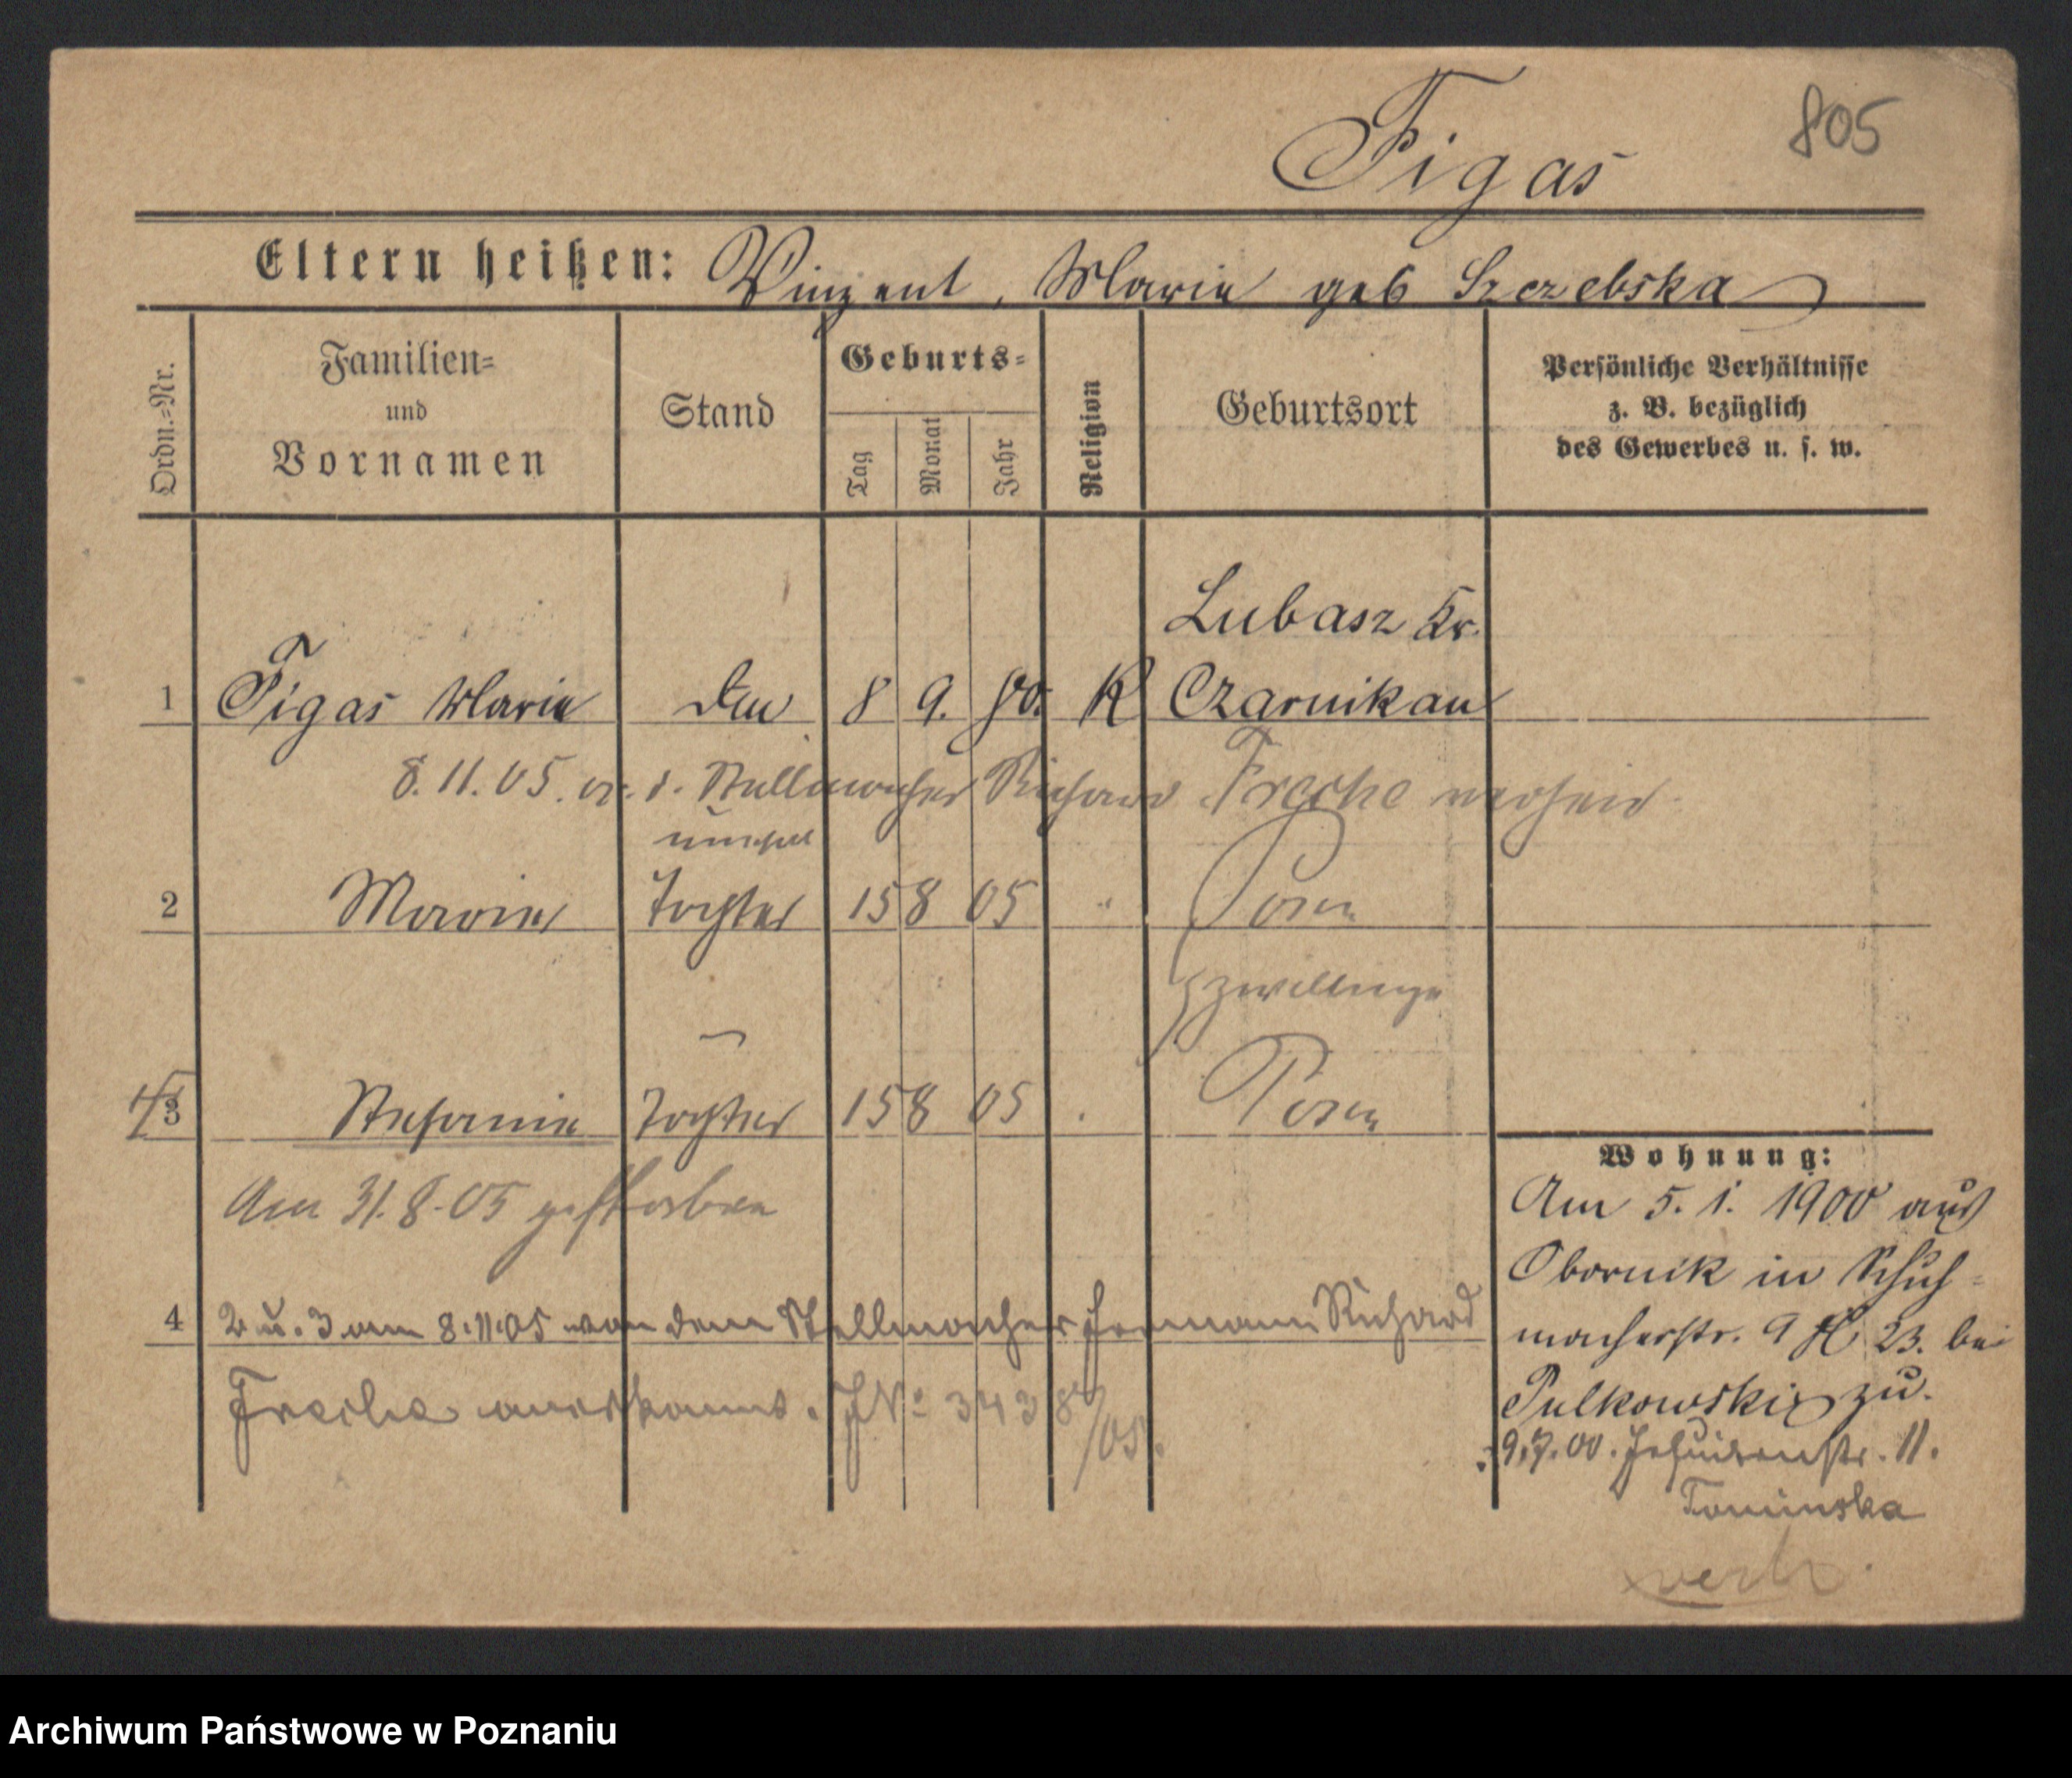 805
Figas
Eltern heißen: Vinzent, Marie geb Szczebska
Ordn.=Nr.
Familien=
und
Vornamen
Stand
Geburts=
Tag
Monat
Jahr
Religion
Geburtsort
Persönliche Verhältnisse
z. B. bezüglich
des Gewerbes u. s. w.
Lubasz Kr.
1 Figas Marie 8 9. 80. K Czarnikau
8.11.05. d. Stellmacher Richard Freche verheir
unehel
2 Marie Tochter 15 8 05 " Posen
Zwillinge
3 Stefanie Tochter 15 8 05 Posen
Am 31.8.05 gestorben
4 2 u. 3 am 8.11.05 von dem Stellmacher Hermann Richard
Freche anerkannt. JNo 3438/05.
Wohnung:
Am 5. 1. 1900 aus
Obornik in Schuh=
macherstr. 9 H 23. bei
Pulkowski zu.
9.7.00. Jesuitenstr. 11.
Tominska
verh.
Archiwum Państwowe w Poznaniu